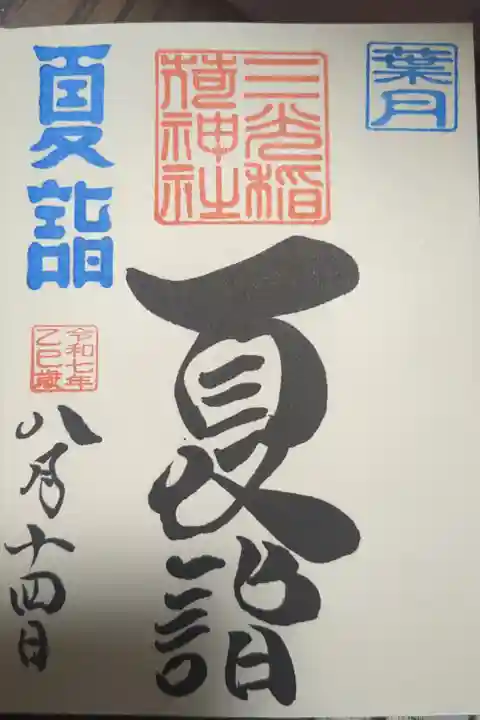 葉月
三光稲
荷神社
夏詣
夏詣
令和七年
乙巳歳
八月十四日